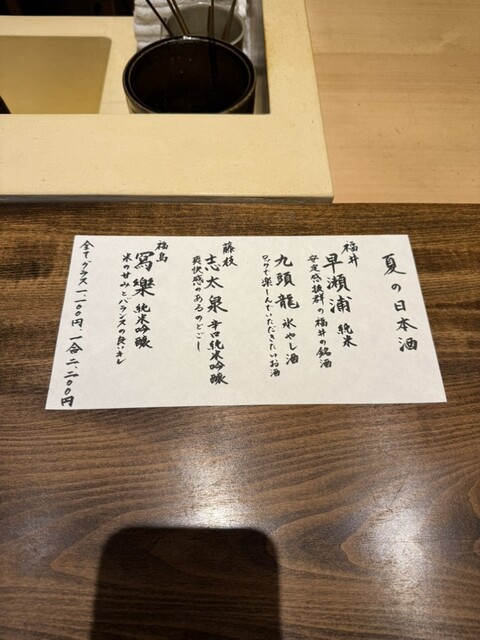 夏の日本酒
福井
早瀬浦 純米
安定感抜群の福井の銘酒
九頭龍 氷やし酒
ロックで楽しんでいただきたいお酒
藤枝
志太泉 辛口純米吟醸
爽快感のあるのどごし
福島
寫樂 純米吟醸
米の甘みとバランスの良いキレ
全てグラス一、一〇〇円、一合二、二〇〇円